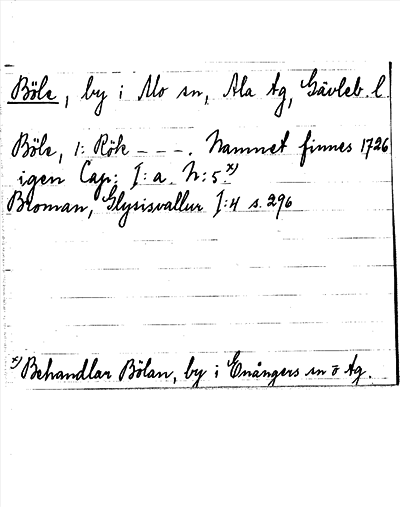 Böle, by i Mo sn, Ala tg, Gävleb. l
Böle, 1: Rök - - - . Namnet finnes 1726
igen Cap: I: a. N: 5 x)
Broman, Glysisvallur I:4 s. 296
x) Behandlar Bölan, by i Enångers sn o tg.